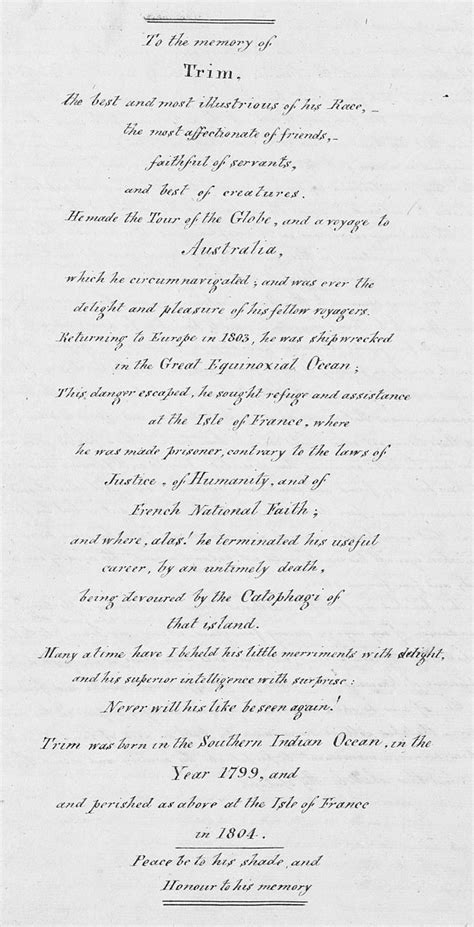 To the memory of
Trim,
the best and most illustrious of his Race, _
the most affectionate of friends,_
faithful of servants,
and best of creatures.
He made the Tour of the Globe, and a voyage to
Australia,
which he circumnavigated; and was ever the
delight and pleasure of his fellow voyagers.
Returning to Europe in 1803, he was shipwrecked
in the Great Equinoxial Ocean;
This danger escaped, he sought refuge and assistance
at the Isle of France, where
he was made prisoner, contrary to the laws of
Justice, of Humanity, and of
French National Faith;
and where, alas! he terminated his useful
career, by an untimely death,
being devoured by the Catophagi of
that island.
Many a time have I beheld his little merriments with delight,
and his superior intelligence with surprise:
Never will his like be seen again!
Trim was born in the Southern Indian Ocean, in the
Year 1799, and
and perished as above at the Isle of France
in 1804.
Peace be to his shade, and
Honour to his memory